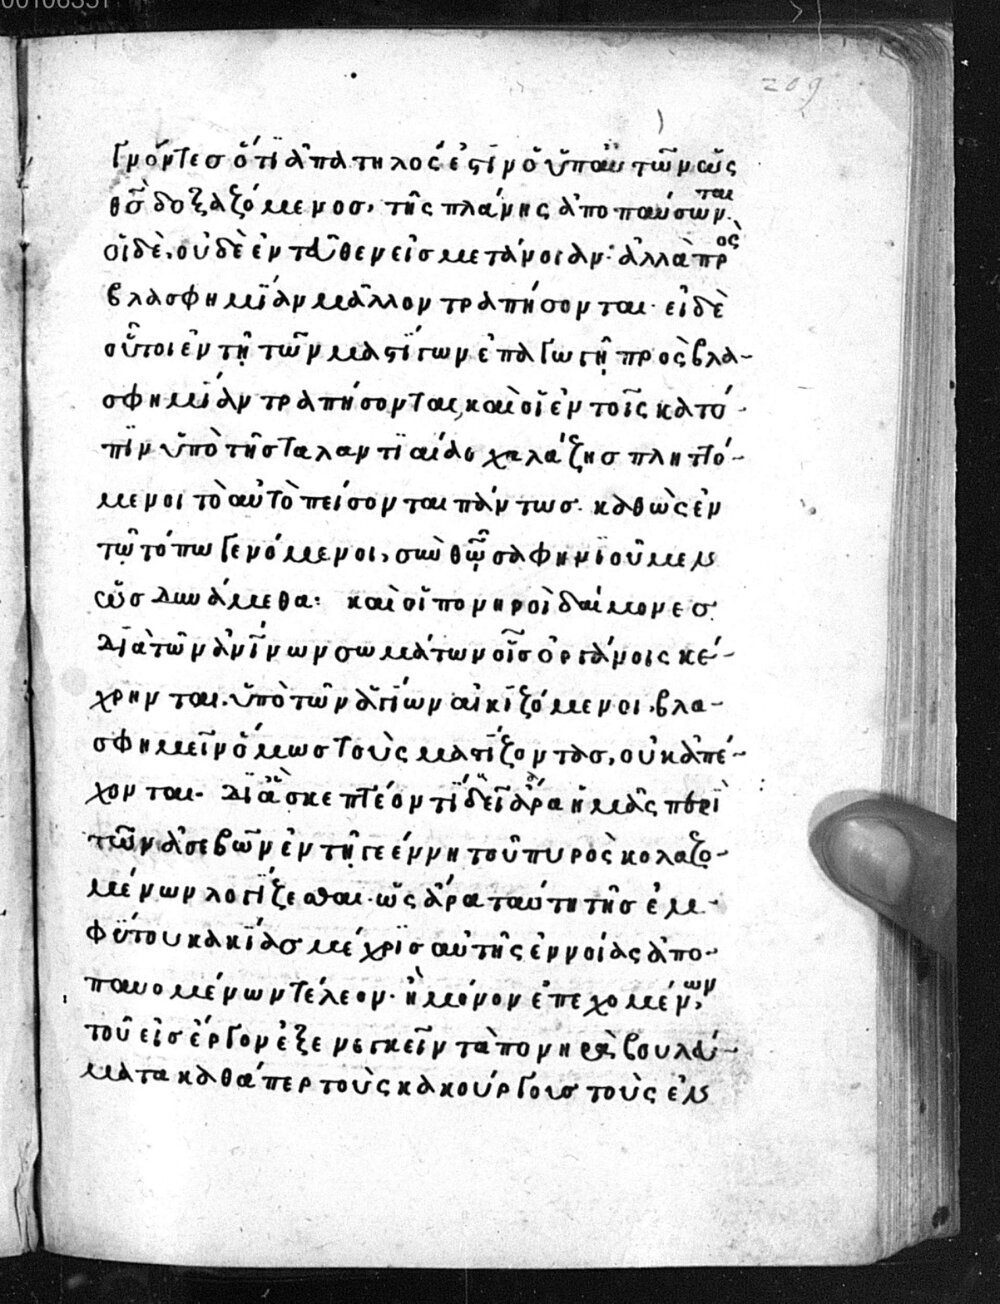 00106351
209
γνόντες ὅτι ἀπατηλός ἐστιν ὁ ὑπ' αὐτῶν ὡς
θς δοξαζόμενος, τῆς πλάνης ἀποπαύσωνται.
οἱ δὲ, οὐδὲ ἐντεῦθεν εἰς μετάνοιαν· ἀλλὰ πρὸς
βλασφημίαν μᾶλλον τραπήσονται· εἰ δὲ
οὗτοι ἐν τῇ τῶν μαστίγων ἐπαγωγῇ πρὸς βλα-
σφημίαν τραπήσονται, καὶ οἱ ἐν τοῖς κατό-
πιν ὑπὸ τῆς ταλαντιαίας χαλάζης πληττό-
μενοι τὸ αὐτὸ πείσονται πάντως· καθὼς ἐν
τῷ τόπω γενόμενοι, σὺν θῷ σαφηνιοῦμεν
ὡς δυνάμεθα: καὶ οἱ πονηροὶ δαίμονες
διὰ τῶν ἀνίνων σωμάτων οἷς ὀργάνοις κέ-
χρηνται, ὑπὸ τῶν ἁγίων αἰκιζόμενοι, βλα-
σφημεῖν ὅμως τοὺς μαστίζοντας, οὐκ ἀπέ-
χονται. διὰ σκεπτέον τί δεῖ ἄρα ἡμᾶς περὶ
τῶν ἀσεβῶν ἐν τῇ γεέννη τοῦ πυρὸς κολαζο-
μένων λογίζεσθαι· ὡς ἄρα ταύτη τῆς ἐμ-
φύτου κακίας μέχρις αὐτῆς ἐννοίας ἀπο-
παυομένων τέλεον· ἢ μόνον ἐπεχομένων,
τοῦ εἰς ἔργον ἐξενεγκεῖν τὰ πονηρὰ βουλεύ-
ματα καθάπερ τοὺς κακούργους τοὺς ἐν